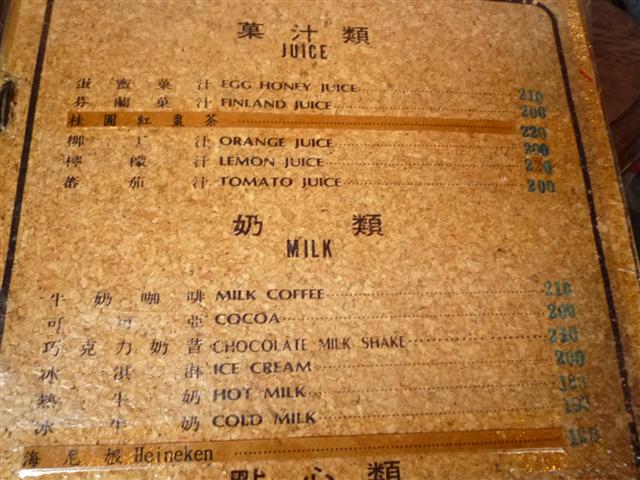 菓汁類
JUICE
蛋蜜菓汁 EGG HONEY JUICE 210
芬蘭菓汁 FINLAND JUICE 200
桂圓紅棗茶 220
柳丁汁 ORANGE JUICE 200
檸檬汁 LEMON JUICE 220
蕃茄汁 TOMATO JUICE 200
奶類
MILK
牛奶咖啡 MILK COFFEE 210
可可亞 COCOA 200
巧克力奶昔 CHOCOLATE MILK SHAKE
冰淇淋 ICE CREAM 200
熱牛奶 HOT MILK 180
冰牛奶 COLD MILK
海尼根 Heineken
點心類